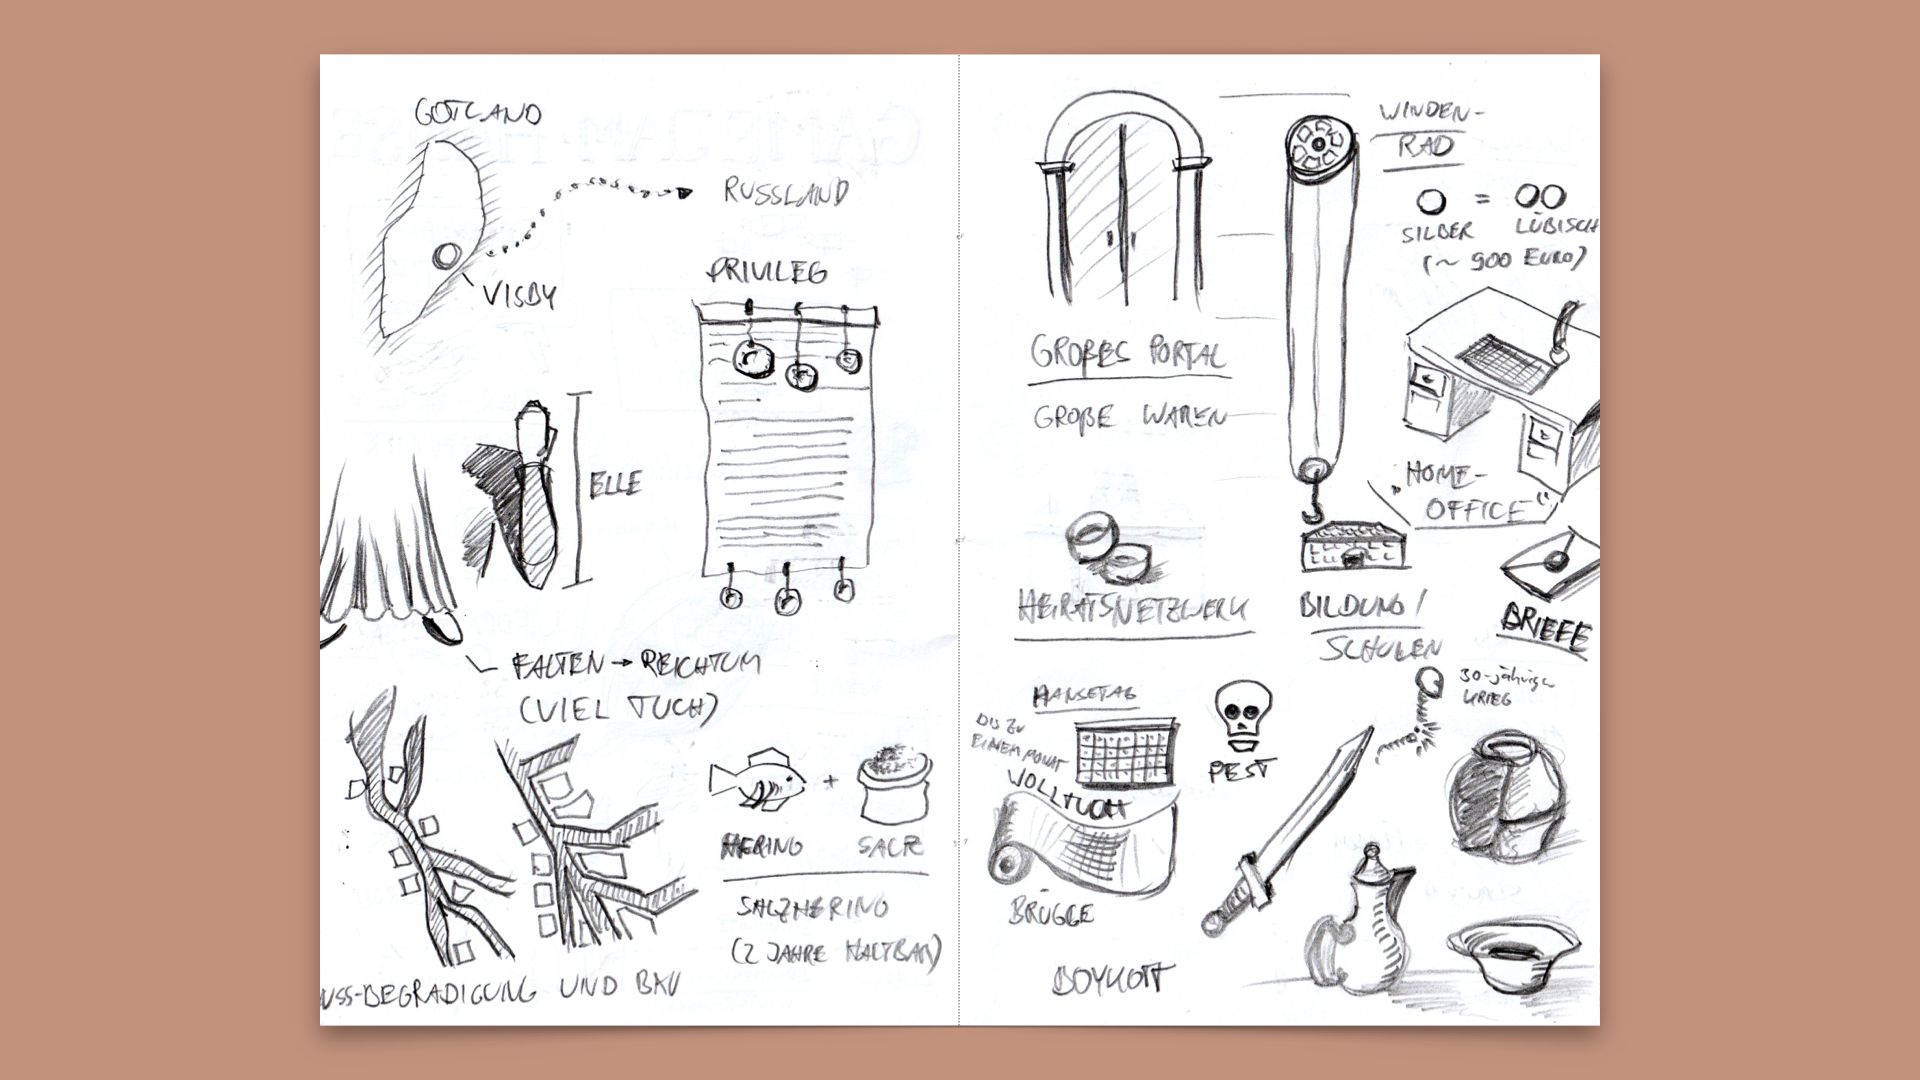 GOTLAND
RUSSLAND
VISBY
PRIVILEG
ELLE
FALTEN → REICHTUM
(VIEL TUCH)
+
HERING SALZ
SALZHERING
(2 JAHRE HALTBAR)
USS-BEGRADIGUNG UND BAU
WINDEN-
RAD
=
SILBER LÜBISCH
(~ 900 EURO)
GROßES PORTAL
GROßE WAREN
"HOME-
OFFICE"
HEIRATSNETZWERK
BILDUNG /
SCHULEN
BRIEFE
HANSETAG
BIS ZU
EINEM MONAT
PEST
30-jähriger
KRIEG
WOLLTUCH
BRÜGGE
BOYKOTT